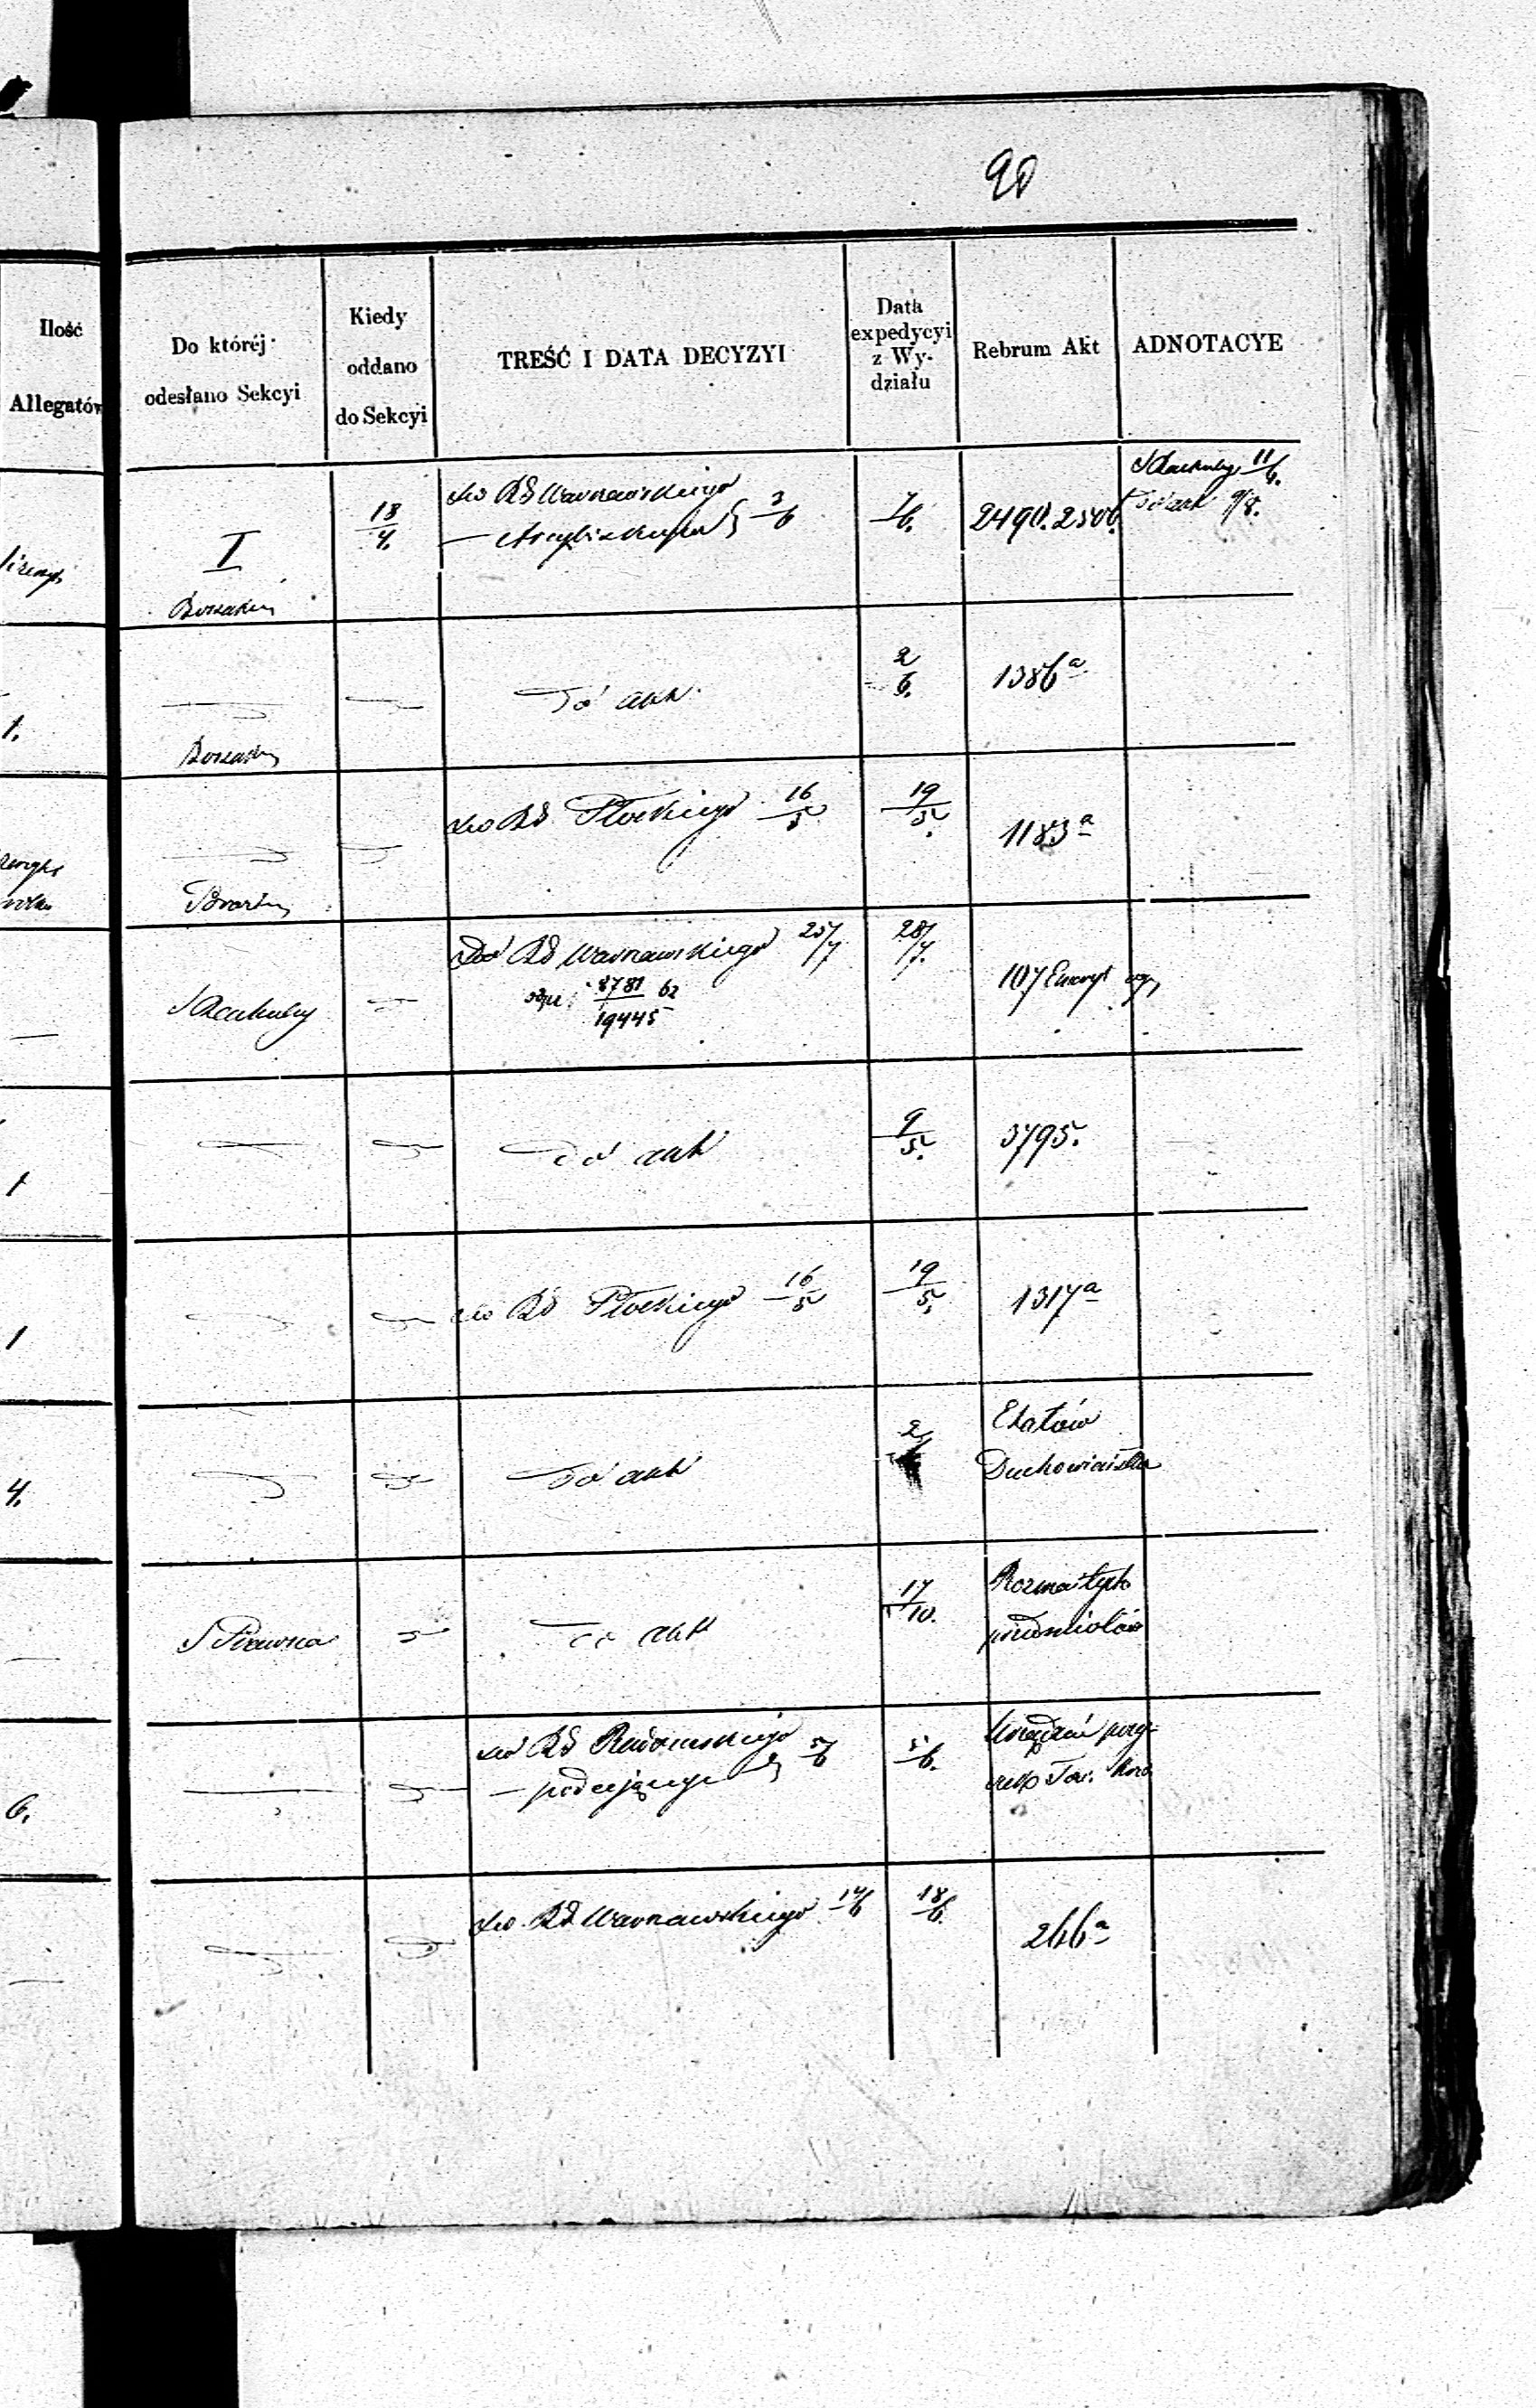 90
Ilość
Allegatów
Do któréj
odesłano Sekcyi
Kiedy
oddano
do Sekcyi
TREŚĆ I DATA DECYZYI
Data
expedycyi
z Wy-
działu
Rebrum Akt
ADNOTACYE
I
18/4.
do RG Warszawskiego
— Arcybiskupa } 3/6
7/6.
2490.
11/6.
do akt 9/8.
1.
do akt
2/6.
1386 a
do RG Płockiego 16/5
19/5.
1183 a
S Rachuby
Do RG Warszawskiego 25/7
8781/19445 62
28/7.
107 Emeryt
1
do akt
9/5.
3795.
1
do RG Płockiego 16/5
19/5.
1317 a
4.
do akt
2/
Etatów
Duchowieństwa
S Prawna
do akt
17/10.
Rozmaitych
przedmiotów
6.
do RG Radomskiego
— podającego } 5/6
5/6.
do RG Warszawskiego 14/6
18/6.
266 a